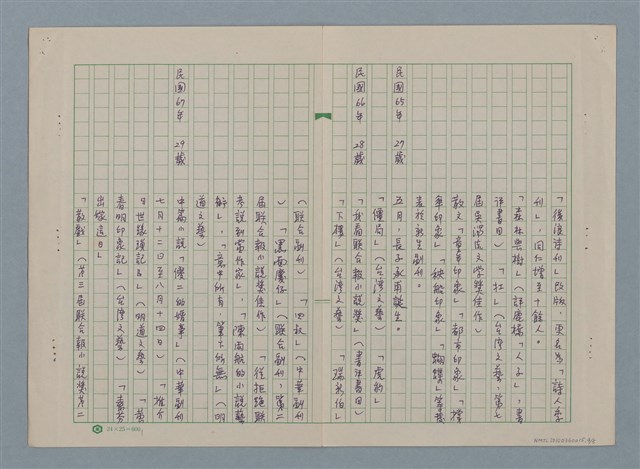 「後浪詩刊」改版，更名為「詩人季
刊」，同仁增至十餘人。
「森林與樹」（評康橋「人子」，書
評書目）「扛」（台灣文藝，第七
屆吳濁流文學獎佳作）
民國65年 27歲
散文「童年印象」「都市印象」
車印象」「秧船印象」「蝴蝶」等發
表於新生副刊。
五月，長子承甫誕生。
民國66年 28歲
「僵局」（台灣文藝）「虎豹」
「我看聯合報小說獎」（書評書目）
「下樓」（台灣文藝）「瑞新伯」
（聯合副刊）「四叔」（中華副刊
）「黑面慶仔」（聯合副刊，第二
屆聯合報小說獎佳作）「從拒絕聯
考談到當作家」，「陳雨航的小說藝
術」，「意中所有，筆下所無」（明
道文藝）
民國67年 29歲
中篇小說「傻二的婚事」（中華副刊
七月十二日至八月十四日）「推介
『世說演記』」（明道文藝）「黃
春明印象記」（台灣文藝）「素芬
出嫁這日」
「散戲」（第三屆聯合報小說獎第二
24×25=600